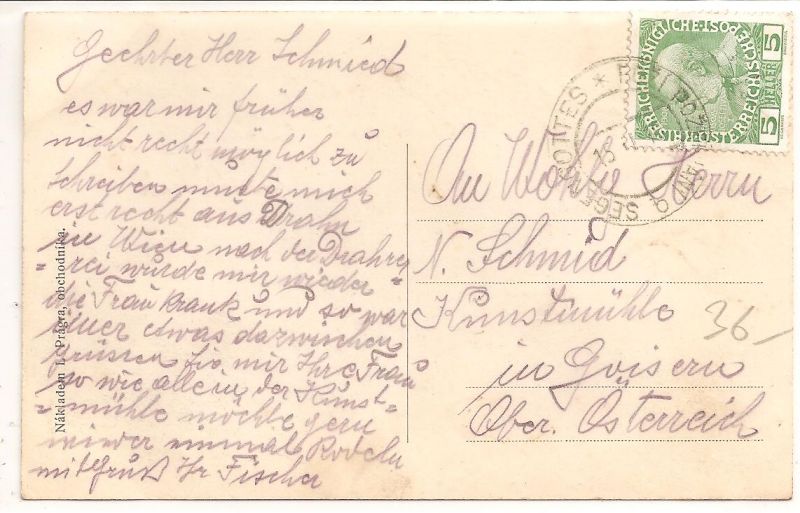 Geehrter Herr Schmied
es war mir früher
nicht recht möglich zu
schreiben muste mich
erst recht aus Drahn
in Wien nach der Drahre
-rei wurde mir wieder
die Frau krank und so war
imer etwas dazwischen
grüssen Sie mir Ihre Frau
so wie allen der Kunst-
-mühle möchte gern
wieder einmal Rodeln
mit Gruß Ihr Fischer
Nákladem L. Prágra, obchodníka.
An Wohle Herrn
N. Schmid
Kunstmühle
in Goisern
Ober. Österreich
36-
SEGEN GOTTES *
15
KAISERLICHE KÖNIGLICHE ÖSTERREICHISCHE POST
5 HELLER 5